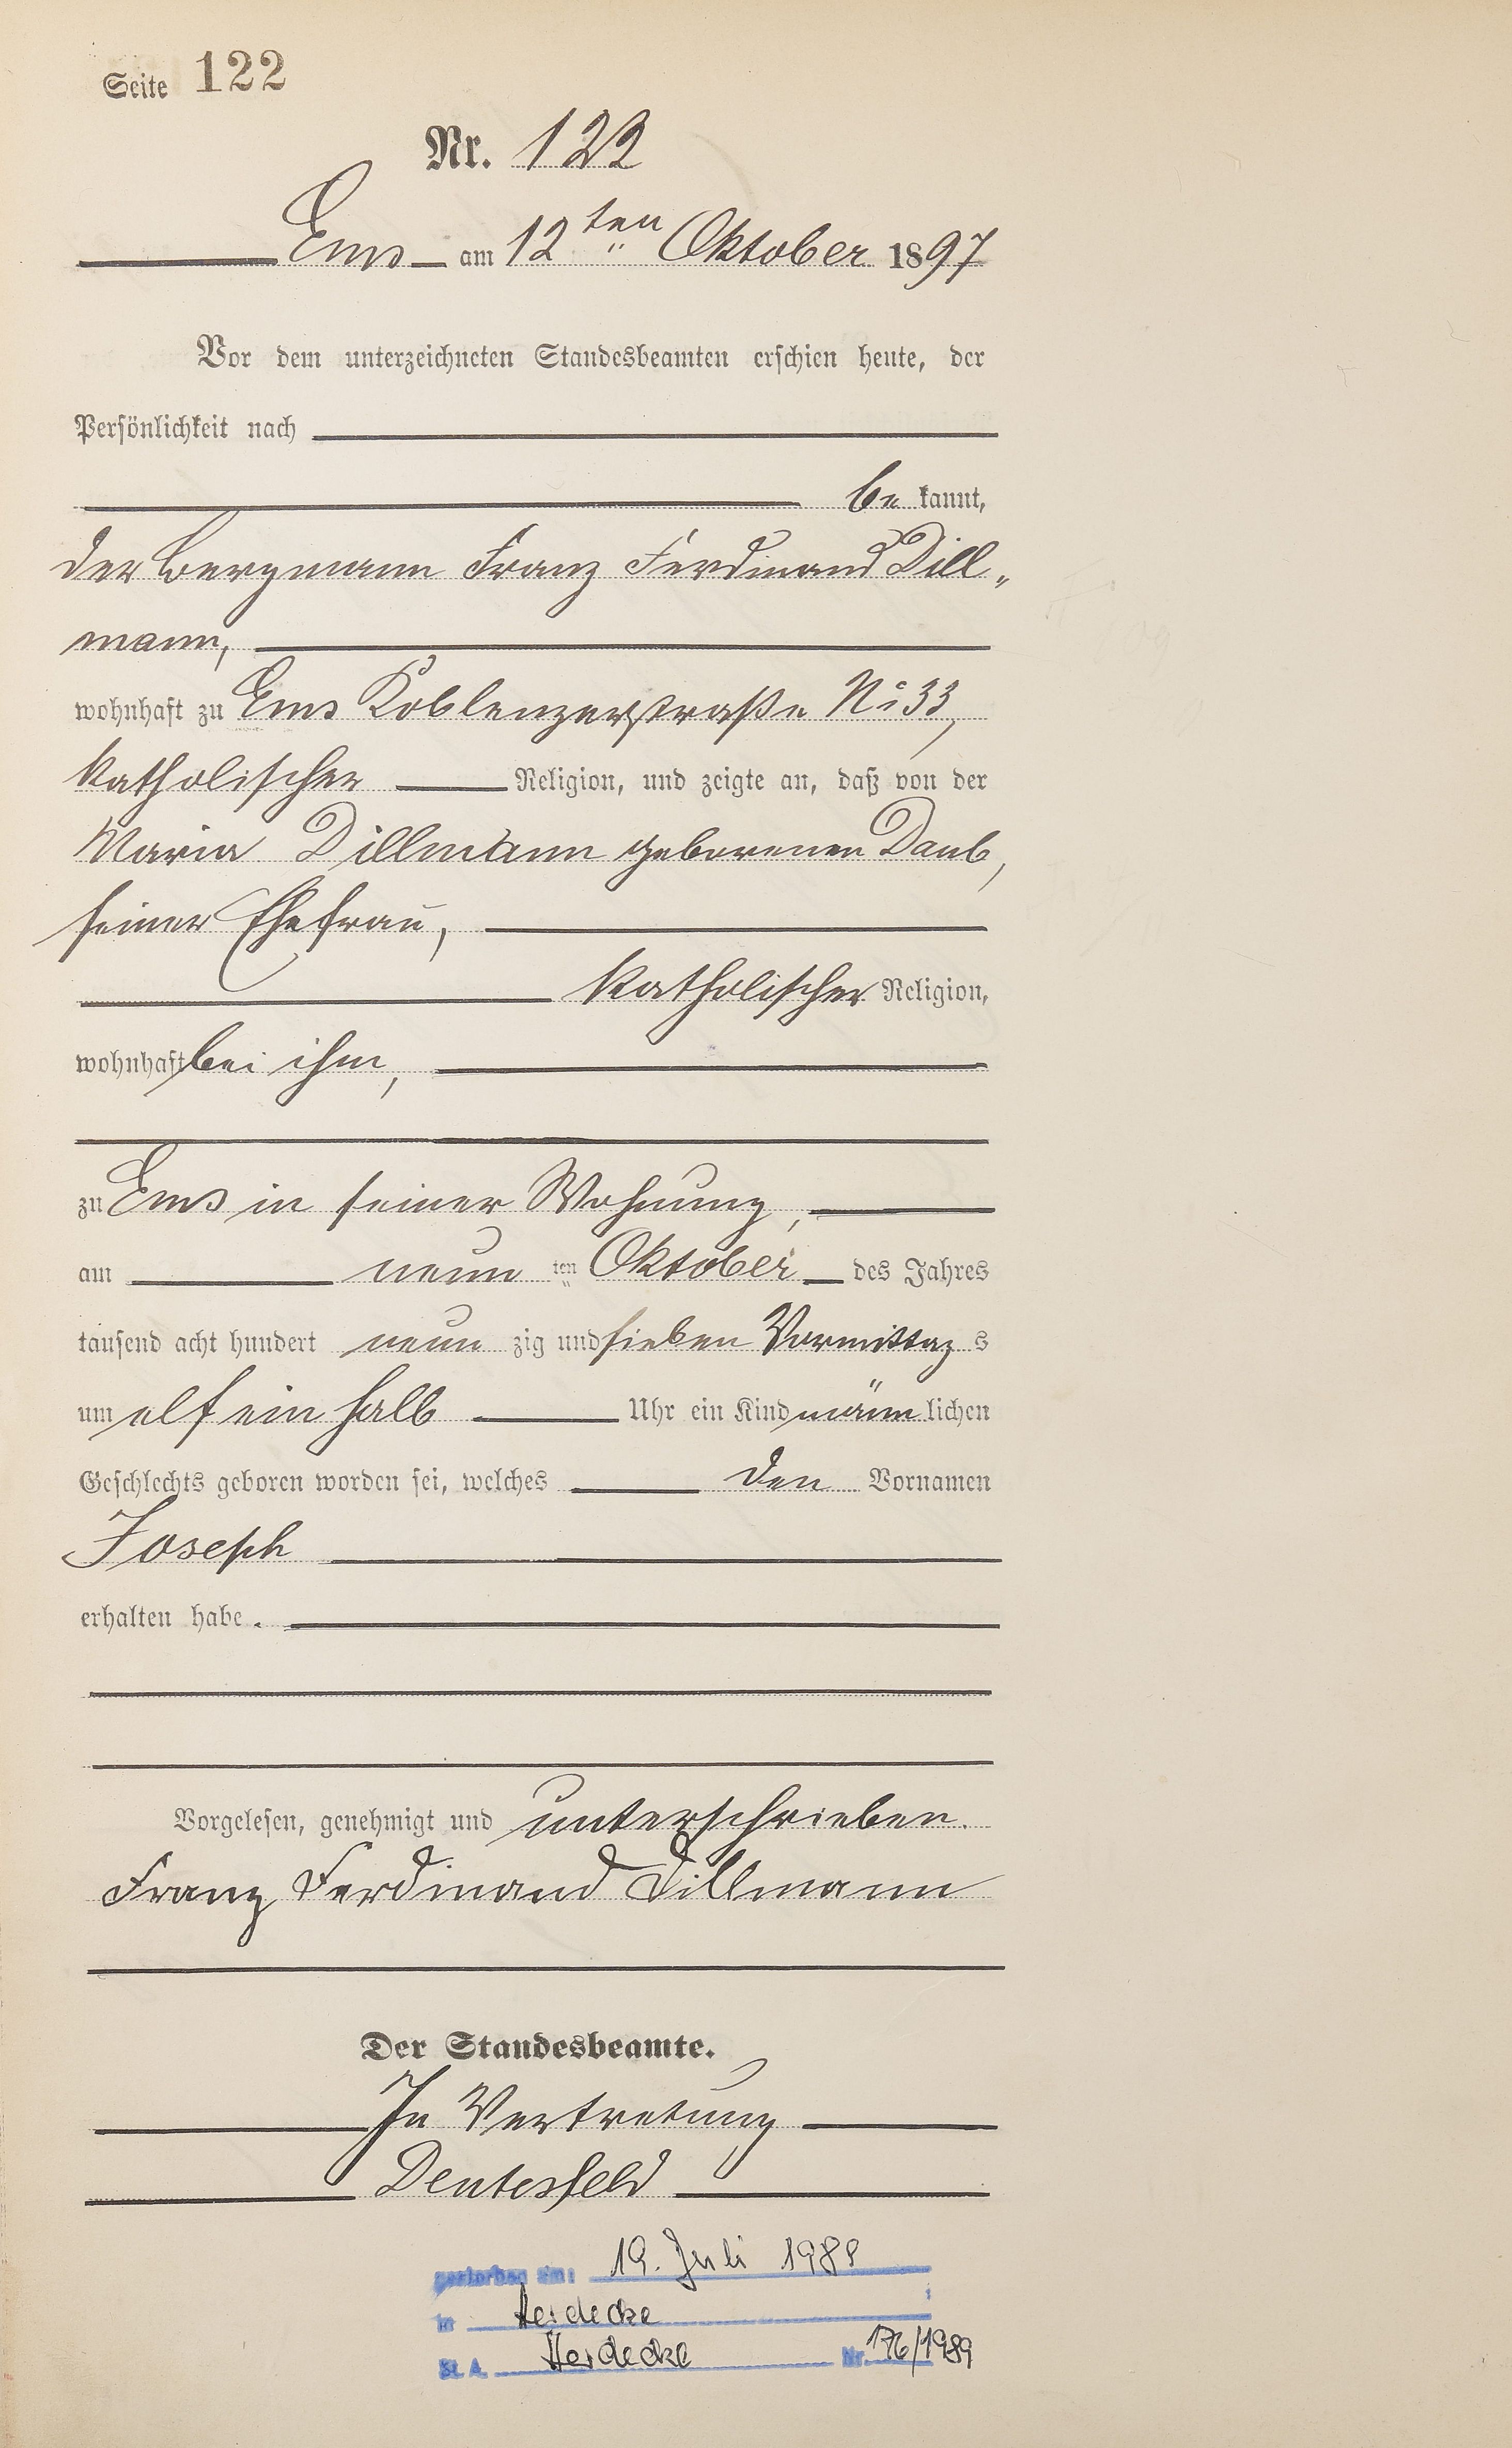 Seite 122
Nr. 122
Ems am 12ten Oktober 1897
Vor dem unterzeichneten Standesbeamten erschien heute, der
Persönlichkeit nach
be kannt,
der Bergmann Franz Ferdinand Dill„
mann,
wohnhaft zu Ems Koblenzerstraße No 33,
katholischer Religion, und zeigte an, daß von der
Maria Dillmann geborenen Daub,
seiner Ehefrau,
katholischer Religion,
wohnhaft bei ihm,
zu Ems in seiner Wohnung,
am neun ten Oktober des Jahres
tausend acht hundert neun zig und sieben Vormittag s
um elf ein halb Uhr ein Kind männ lichen
Geschlechts geboren worden sei, welches den Vornamen
Joseph
erhalten habe.
Vorgelesen, genehmigt und unterschrieben.
Franz Ferdinand Dillmann
Der Standesbeamte.
In Vertretung
Deutesfeld
gestorben am: 19. Juli 1989
in Herdecke
St. A. Herdecke Nr. 176/1989